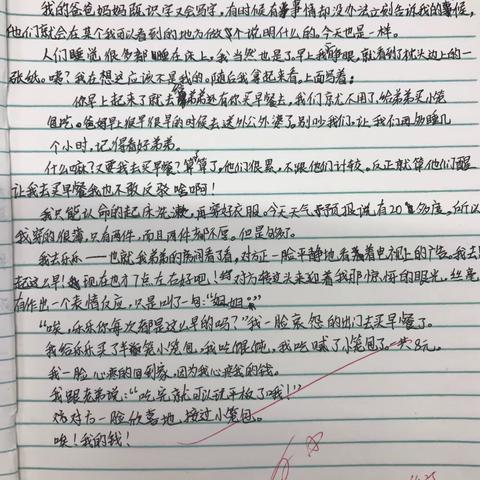 我的爸爸妈妈既识字又会写字,有时候有事情却没办法立刻告诉我的时候,
他们就会在某个我可以看到的地方做个说明什么的。今天也是一样。
人们睡觉很多都睡在床上,我当然也是了。早上我睁眼,就看到了枕头边上的一
张纸。嗯?我在想这应该不是我的。随后我拿起来看,上面写着:
你早上起来了就去你弟弟还有你买早餐去,我们就不用了,给弟弟买小笼
包吃。爸妈早上很早很早的时候去送外公外婆了。别吵我们,让我们再多睡几
个小时,记得看好弟弟。
什么嘛?又要我去买早餐?算算了,他们很累,不跟他们计较。反正就算他们醒
让我去买早餐我也不敢反驳啥啊!
我只能认命的起床洗漱,再穿好衣服。今天天气预报说有20多度。所以
我穿的很薄,只有两件,而且两件都不厚。但是够了。
我去乐乐——也就我弟弟的房间看了看,对方正一脸平静地看着电视上的广告。我去!
起这么早!现在也才7点左右好吧!对方转过头来迎着我那惊讶的眼光,丝毫
有作出一个表情反应,只是叫了一句:“姐姐。”
“唉,乐乐你每次都是这么早的吗?”我一脸哀怨的出门去买早餐了。
我给乐乐买了半笼小笼包,我吃馄饨,我吃腻了小笼包了。一共8元。
我一脸心疼的回到家,因为我心疼我的钱。
我跟老弟说:“吃完就可以玩平板了哦!”
对方一脸欣喜地,接过小笼包。
唉!我的钱!